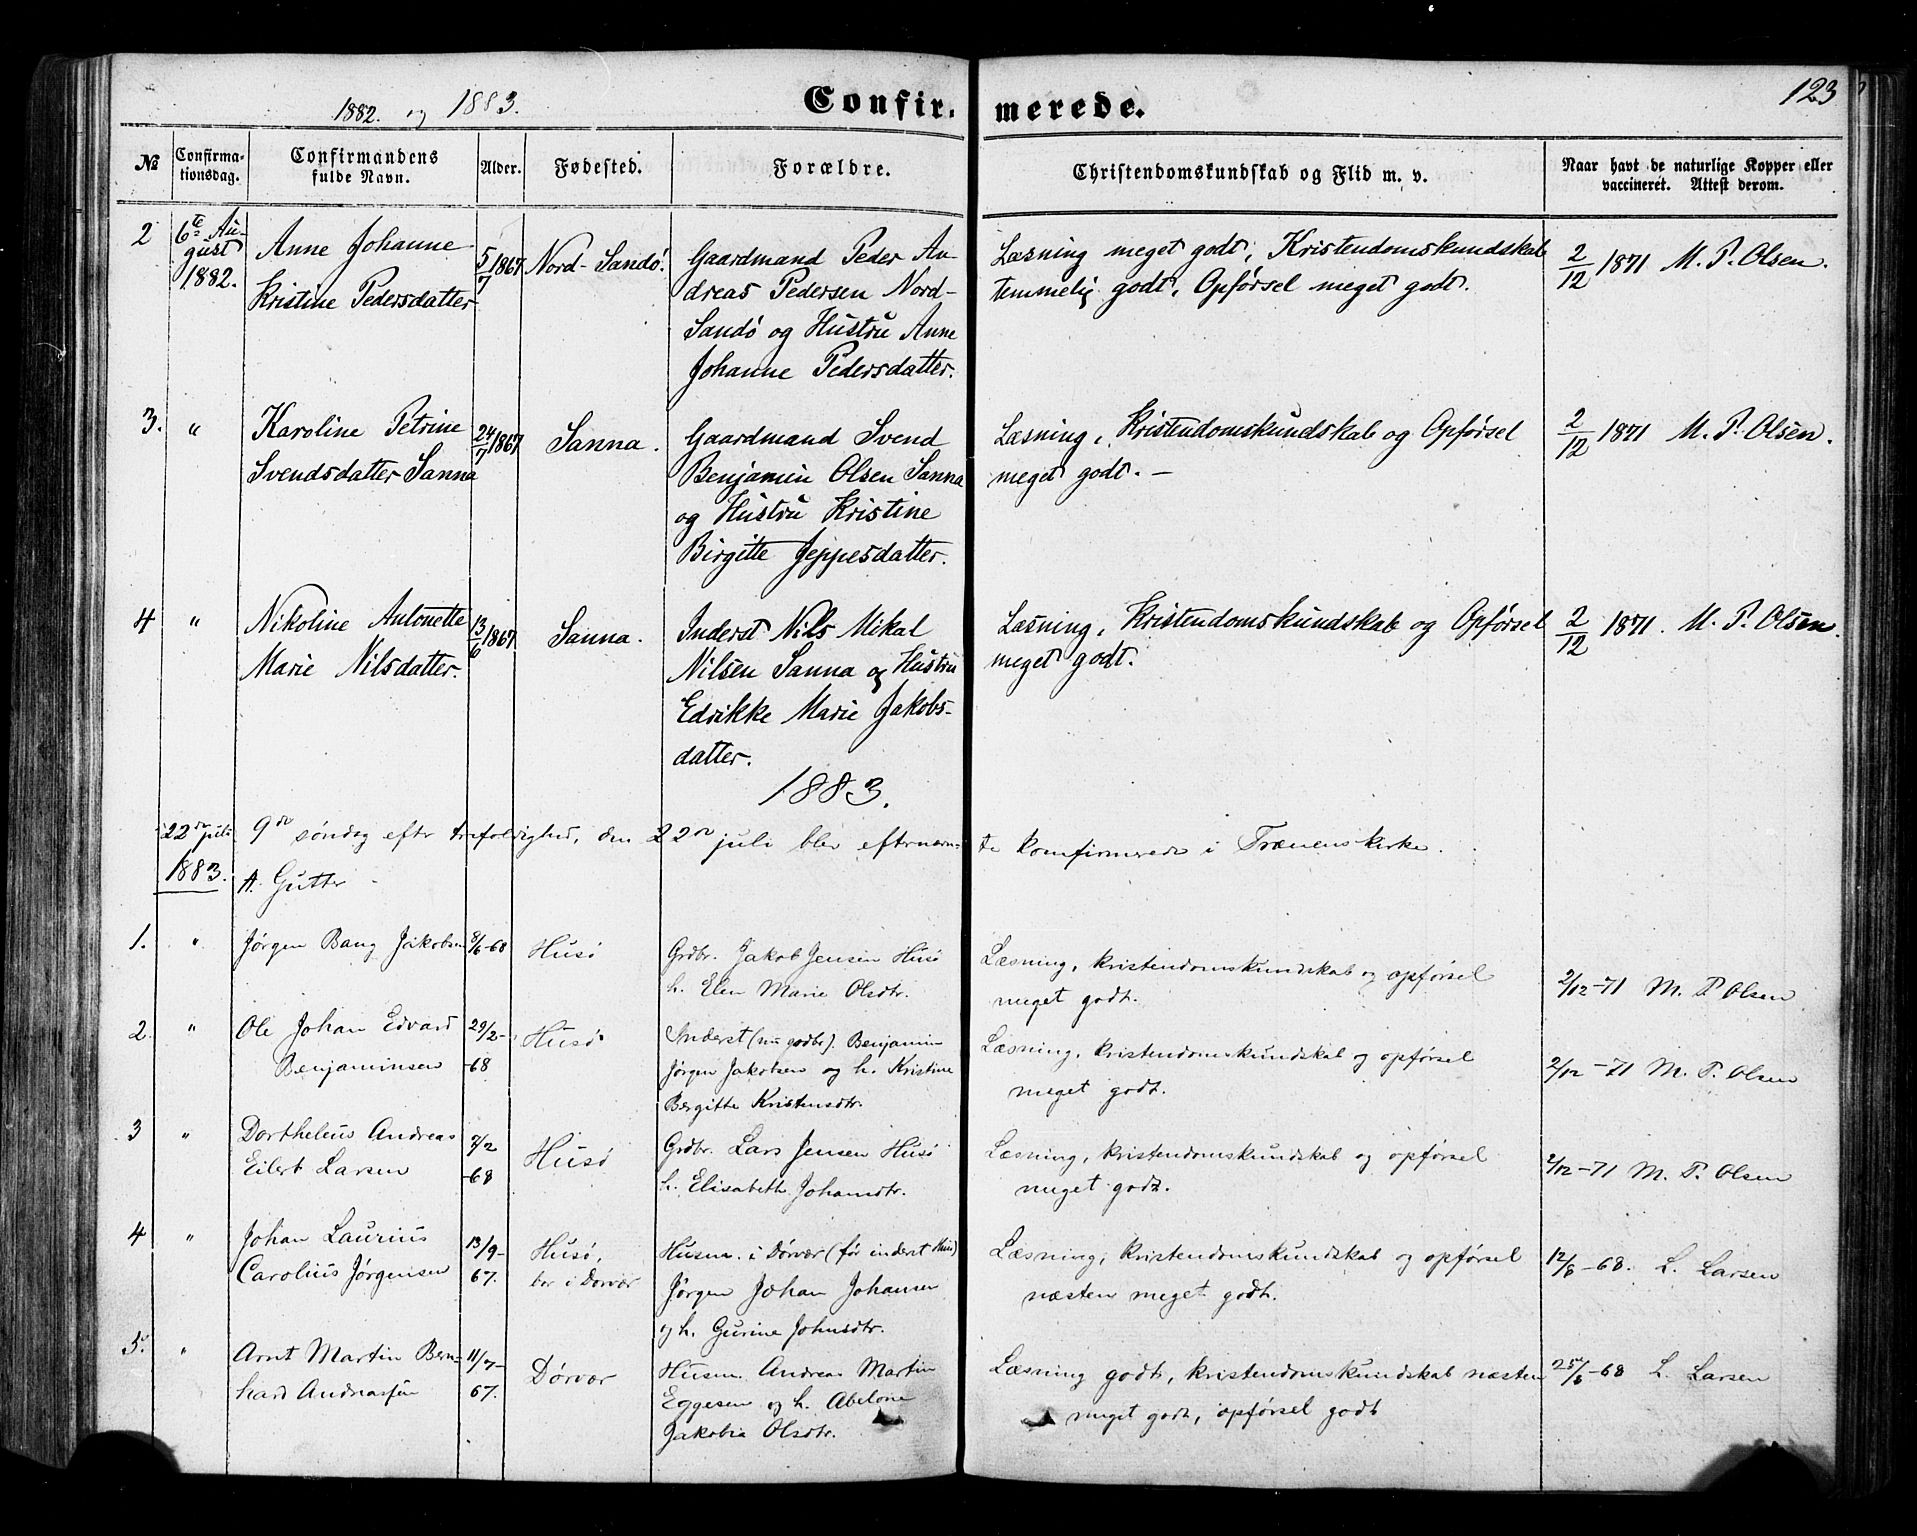 123
1882. og 1883.
Confirmerede.
No
Confirmationsdag.
Confirmandens fulde Navn.
Alder.
Fødested.
Forældre.
Christendomskundskab og Flid m. v.
Naar havt de naturlige Kopper eller vaccineret. Attest derom.
2 6te August 1882. Anne Johanne Kristine Pedersdatter 5/7 1867 Nord-Sandö. Gaardmand Peder Andreas Pedersen Nord-Sandö og Hustru Anne Johanne Pedersdatter. Læsning meget godt, Kristendomskundskab temmelig godt, Opførsel meget godt. 2/12 1871 M. P. Olsen.
3. " Karoline Petrine Svendsdatter Sanna 24/7 1867 Sanna. Gaardmand Svend Benjamin Olsen Sanna og Hustru Kristine Birgitte Jeppesdatter. Læsning, Kristendomskundskab og Opførsel meget godt. – 2/12 1871 M. P. Olsen.
4 " Nikoline Antonette Marie Nilsdatter. 13/6 1867 Sanna. Inderst Nils Mikal Nilsen Sanna og Hustru Edrikke Marie Jakobsdatter. Læsning, Kristendomskundskab og Opførsel meget godt. 2/12 1871. M. P. Olsen.
1883.
22de juli 1883. 9de søndag eftr trefoldighed, den 22de juli blev efternævnte komfirmerede i Trænens kirke.
A. Gutter
1. " Jørgen Bang Jakobsen 8/6-68 Husö Grdbr. Jakob Jensen Husö h. Elen Marie Olsdtr. Læsning, kristendomskundskab og opførsel meget godt. 2/12-71 M. P Olsen
2. " Ole Johan Edvard Benjaminsen 29/2-68 Husö Inderst (nu gdbr). Benjamin Jørgen Jakobsen og h. Kristine Bergitte Kristensdtr. Læsning, kristendomskundskab og opførsel meget godt. 2/12-71 M. P. Olsen
3 " Dortheleus Andreas Eilert Larsen 2/2-68 Husö Grdbr. Lars Jensen Husö h. Elisabeth Johansdtr. Læsning, kristendomskundskab og opførsel meget godt. 2/12-71 M. P. Olsen
4 " Johan Laurius Carolius Jørgensen 13/9-67. Husö, bor i Dørvær Husm. i Dørvær (før inderst Husö) Jørgen Johan Johansen og h. Gurine Johnsdtr. Læsning, kristendomskundskab og opførsel næsten meget godt. 12/8-68. L. Larsen
5. " Arnt Martin Bernhard Andreassen 11/7-67. Dørvær Husm. Andreas Martin Eggesen og h. Abelone Jakobia Olsdtr. Læsning godt, kristendomskundskab næsten meget godt, opførsel godt 25/8-68 L. Larsen